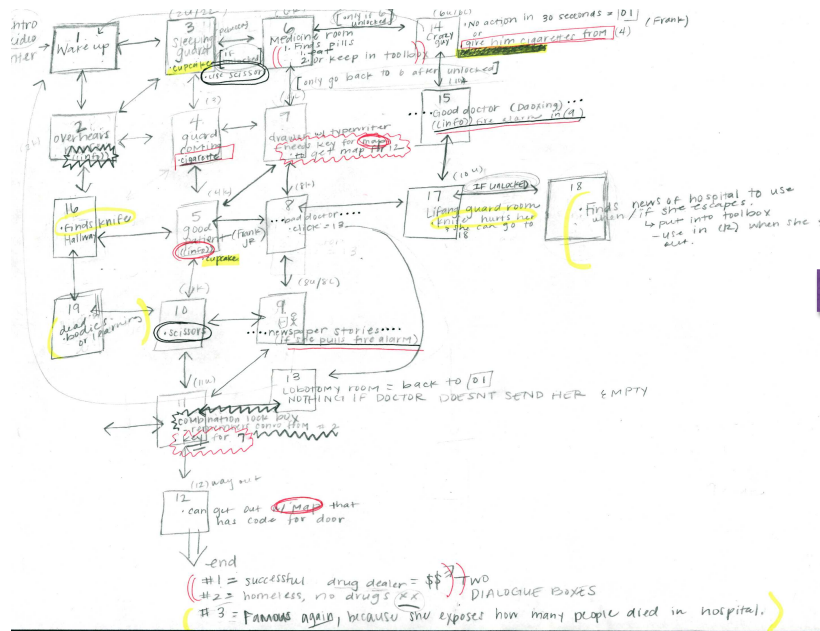 ntro
video
1
Wake up
3
sleeping
guard
cupcake
use scissors
6
Medicine room
1. Finds pills
2. or keep in toolbox
[only if 6
unlocked]
[only go back to 0 after unlocked]
14
Crazy
guy
No action in 30 seconds = [01]
or
give him cigarettes from (4)
(Frank)
2
overhears
(info)
4
guard
cigarette
7
typewriter
needs key for map
to get map for 12
15
Good doctor (Daoxing)
(info) fire alarm in (9)
16
Finds knife
Hallway
5
good
patient (Frank
JR)
(info)
cupcake
8
bad doctor
click = 13
17
Lifang guard room
Knife hurts her
she can go to
18
IF UNLOCKED
18
Finds news of hospital to use
when/if she escapes.
↳ put into toolbox
- use in (12) when she
out.
19
dead
bodies
or learning
10
scissors
9
newspaper stories
(if she pulls fire alarm)
13
LOBOTOMY ROOM = back to [01]
NOTHING IF DOCTOR DOESNT SEND HER EMPTY
11
combination lock box
key for 7
12
(12) way out
can get out w/ map that
has code for door
end
#1 = successful drug dealer = $$
#2 = homeless, no drugs xx
TWO
DIALOGUE BOXES
#3 = Famous again, because she exposes how many people died in hospital.